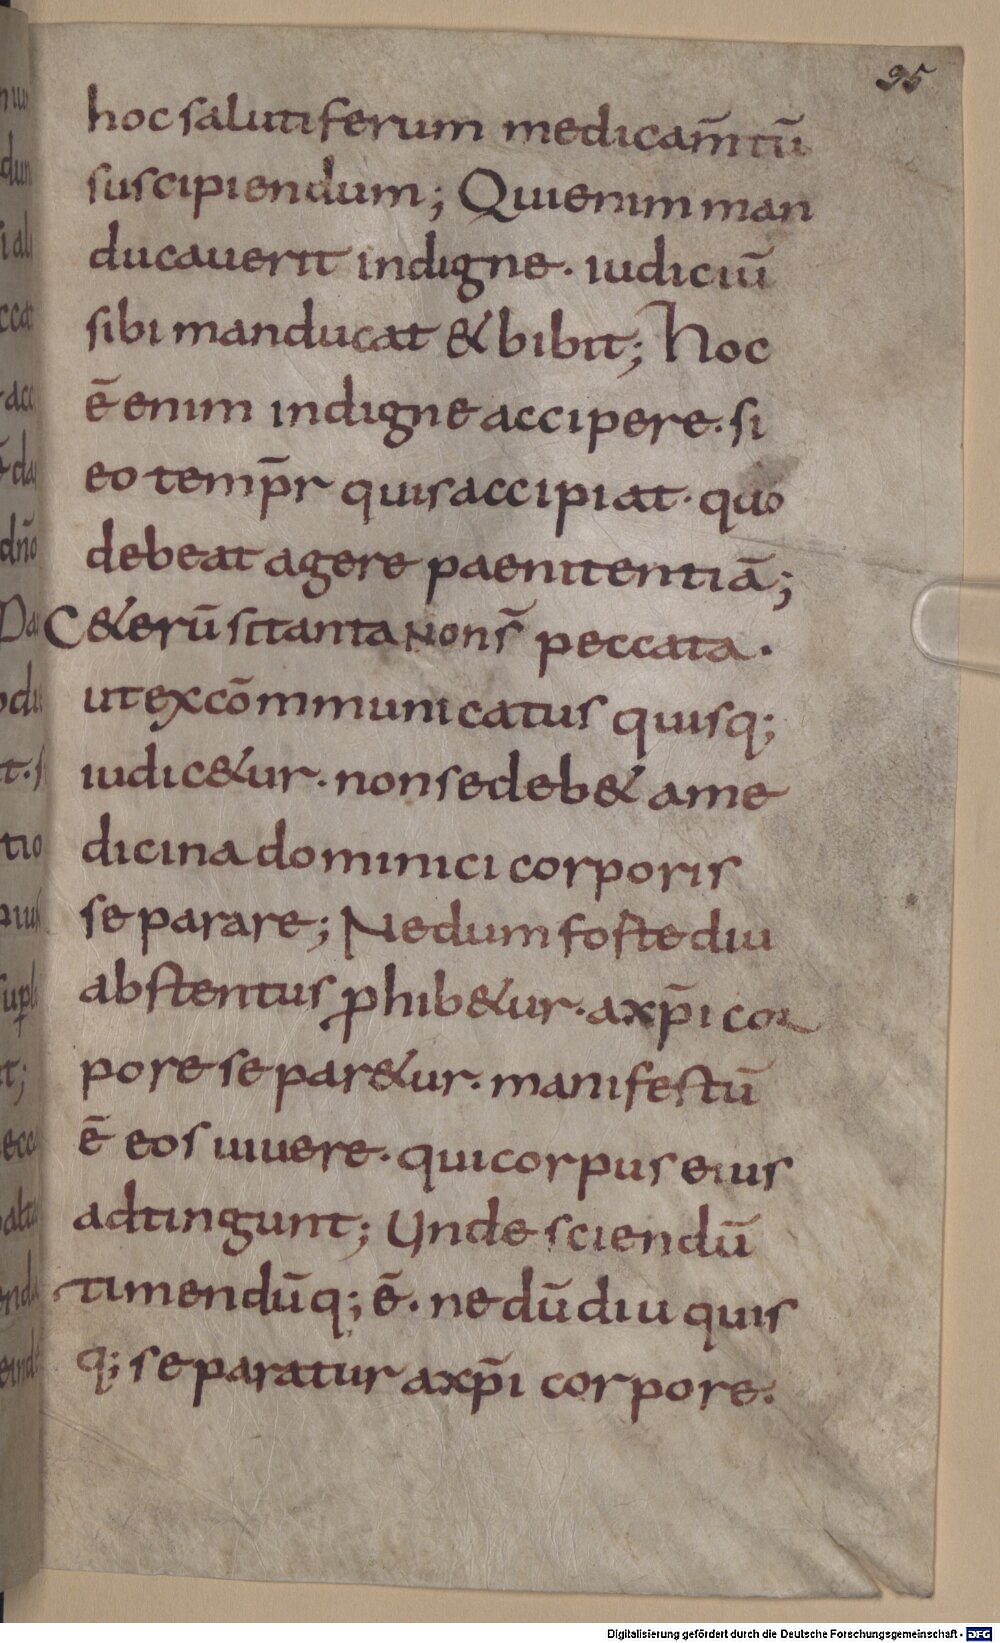 95
hoc salutiferum medicam̄tū
suscipiendum; Qui enim man
ducauerit indigne· iudiciū
sibi manducat & bibit; Hoc
ē enim indigne accipere· si
eo temp̄r quis accipiat· quo
debeat agere paenitentiā;
C&erū si tanta non s̄ peccata·
ut excōmmunicatus quisq;
iudic&ur· non se deb& a me
dicina dominici corporis
separare; Ne dum foste diu
abstentus ꝓhib&ur· a xp̄i cor
pore separ&ur· manifestū
ē eos uiuere· qui corpus eius
adtingunt; Unde sciendū
timendūq; ē· ne dū diu quis
q; separatur a xp̄i corpore·
Digitalisierung gefördert durch die Deutsche Forschungsgemeinschaft - DFG